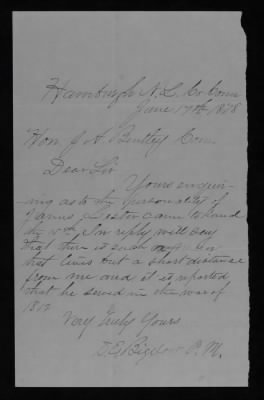 Hamburgh N. L. Co Conn
June 17th 1878
Hon. J. A. Bentley Com.
Dear Sir
Yours enquir-
ing as to the personality of
James Lester came to hand
the In reply will say
that there is such
that lives but a short distance
from me and it is reported
that he served in the war of
1812
Very Truly Yours
P. M.